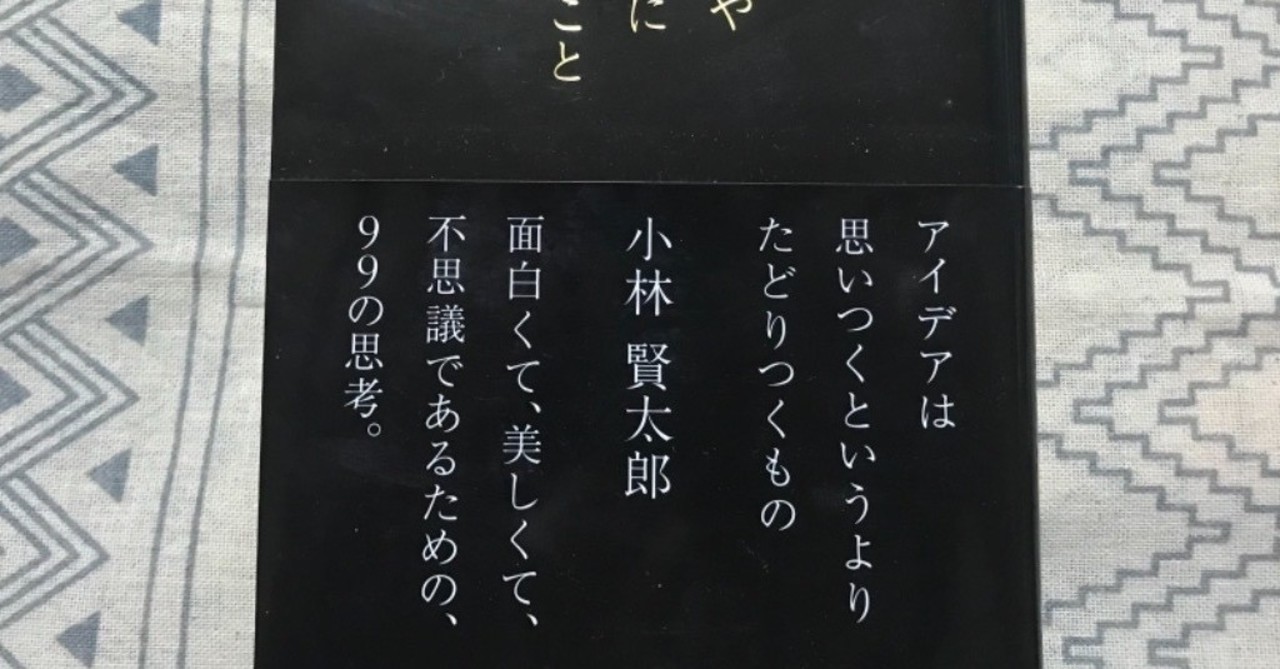 や
に
こと
アイデアは
思いつくというより
たどりつくもの
小林 賢太郎
面白くて、美しくて、
不思議であるための、
99の思考。